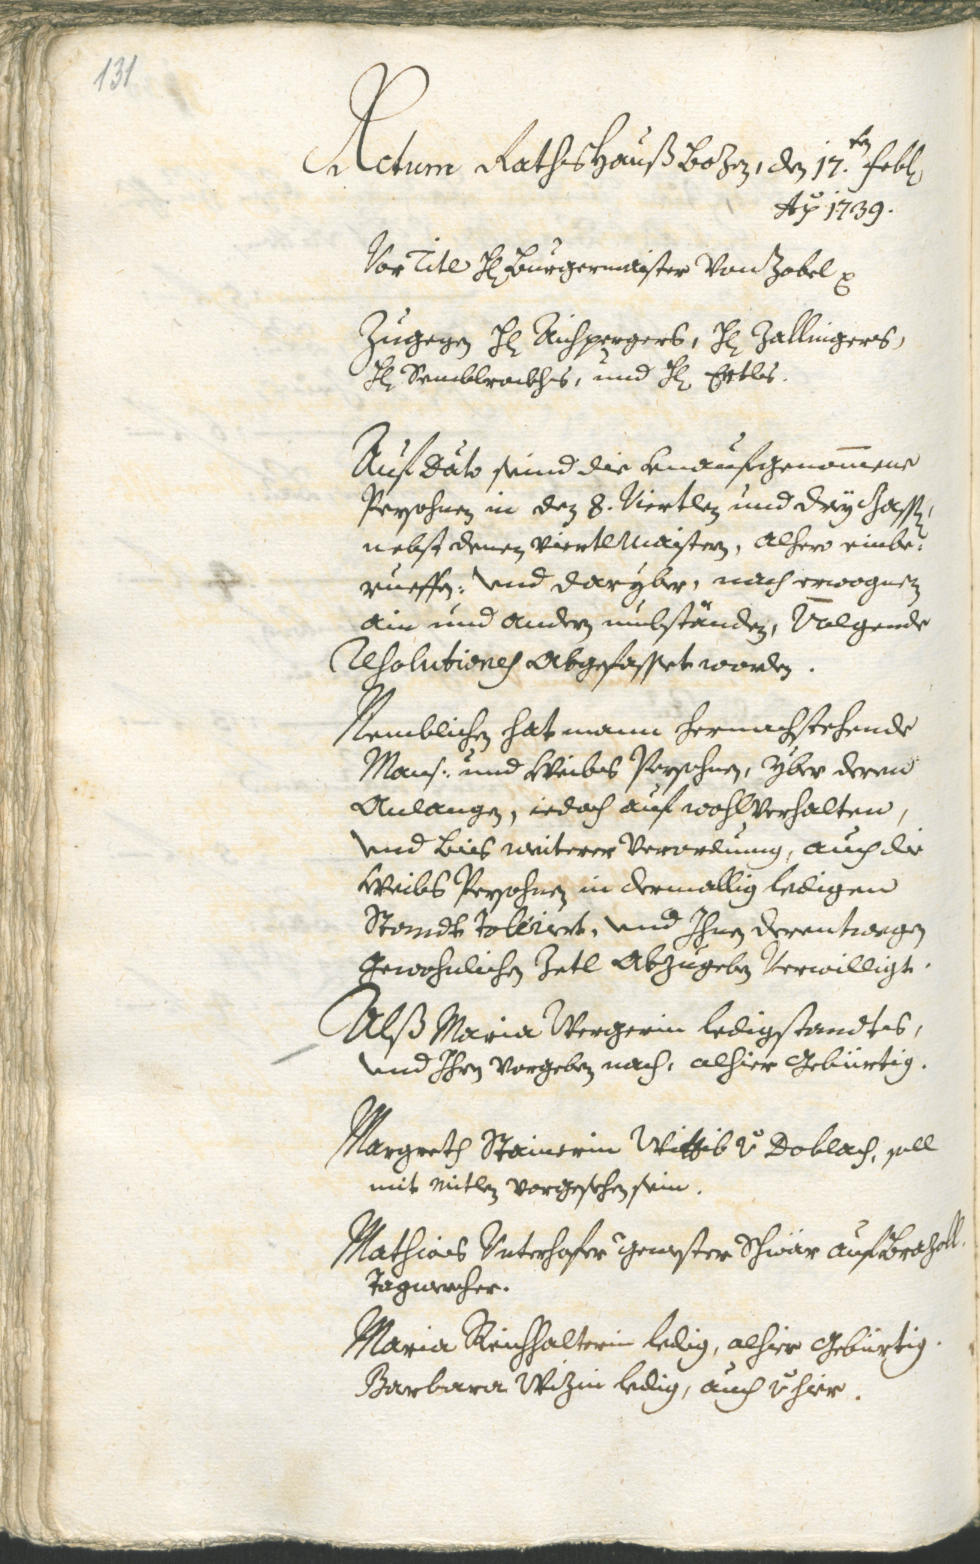 131
Actum Rathshauß Bozen, den 17.ten Febr.
Ao 1739.
Vor Titl Hr. Burgermaister Von Zobel
Zugegen Hr. Aichpergers, Hr. Zallingers,
Hr. und Hr. Ertls.
Auf Dato seind die Unaufgenom̄ene
Persohnen in den 8. Viertlen und drey
nebst denen Viertlmaistern, alhero einbe-
rueffen: und daryber, nach erwognen
ain und andern umbständen, Volgende
Resolutiones Abgefasset worden.
Nemblichen hat mann hernachstehende
Mans: und Weibs Persohnen, yber deren
Anlangen, iedoch auf wohlverhalten,
und bis weiterer Verordnung, auch die
Weibs Persohnen in dermallig ledigen
Standt Tolleriert, und Ihnen derentwegen
gewohnlichen Zetl Abzugeben Verwilligt.
Alß Maria Wergerin ledigstandts,
und Ihren vorgeben nach, alhier gebürtig.
Margreth Stainerin Wittib v. Doblach, soll
mit mitlen vorgesehen sein.
Mathias Unterhofer gewester auf
Tagwercher.
Maria Reichhalterin ledig, alhier gebürtig.
Barbara Wizin ledig, auch v. hier.